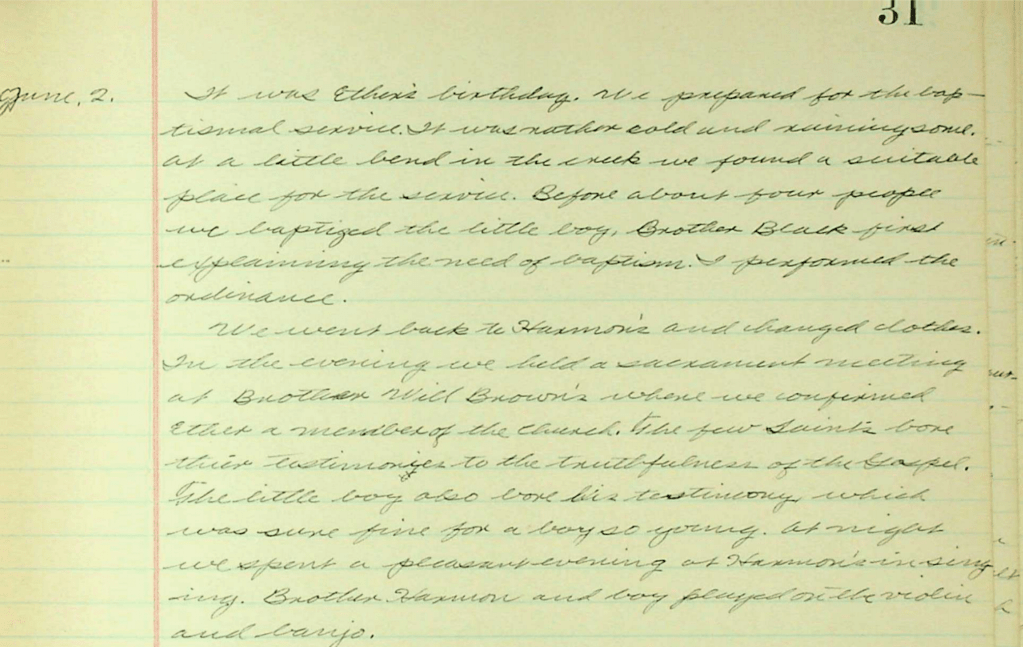 31
June, 2.
It was Ether's birthday. We prepared for the bap-
tismal service. It was rather cold and raining some.
At a little bend in the creek we found a suitable
place for the service. Before about four people
we baptized the little boy, Brother Black first
explaining the need of baptism. I performed the
ordinance.
We went back to Harmon's and changed clothes.
In the evening we held a sacrament meeting
at Brother Will Brown's where we confirmed
Ether a member of the church. The few Saints bore
their testimonies to the truthfulness of the Gospel.
The little boy also bore his testimony, which
was sure fine for a boy so young. At night
we spent a pleasant evening at Harmon's in sing-
ing. Brother Harmon and boy played on the violin
and banjo.